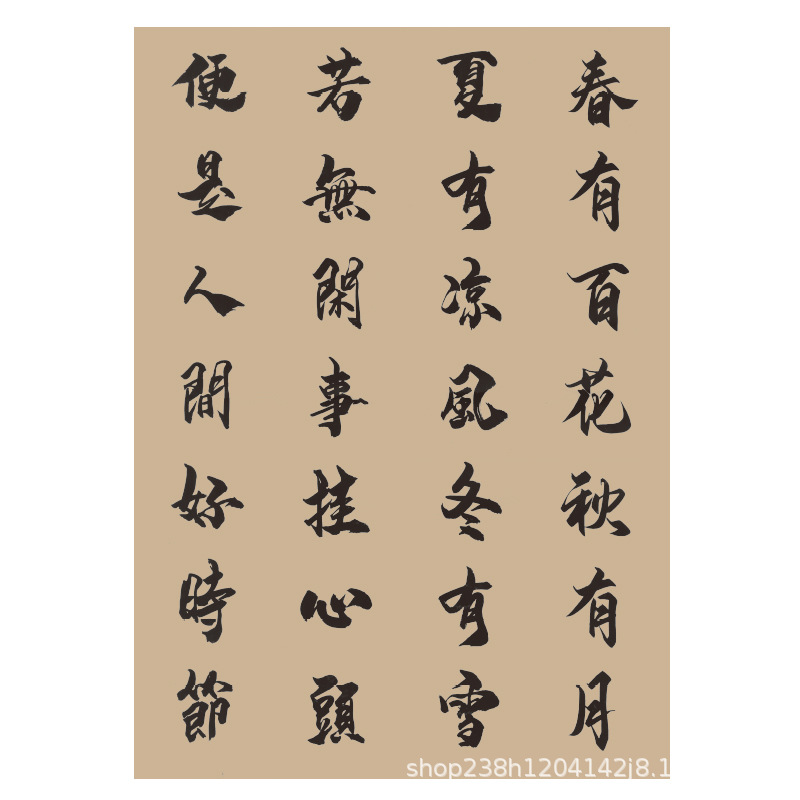 春有百花秋有月
夏有凉風冬有雪
若無閑事挂心頭
便是人間好時節
shop238h1204142j8.1